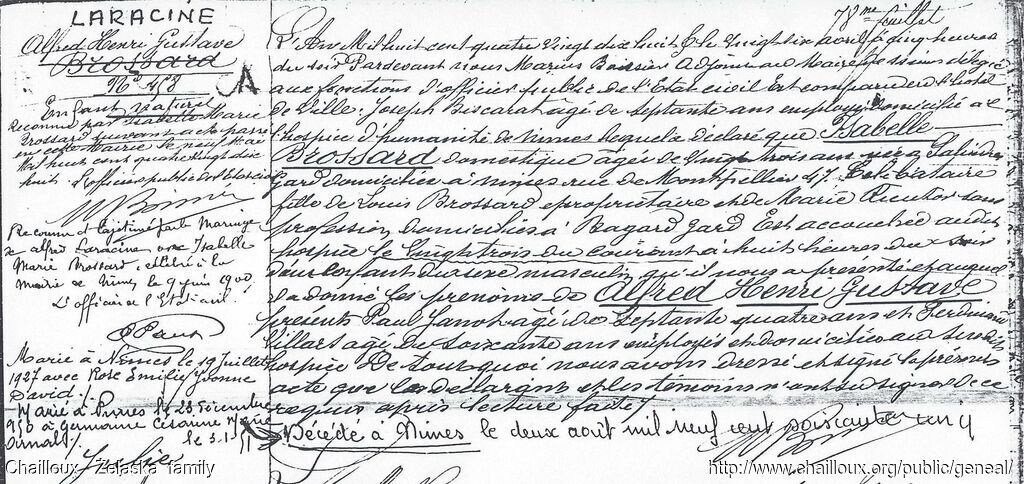 LARACINE
Alfred Henri Gustave
Brossard
No 458
Enfant naturel
Reconnu par Isabelle Marie
Brossard suivant acte passé
en cette Mairie le neuf Mai
Mil huit cent quatre vingt dix
huit. L'officier public de l'Etat civil
Reconnu et légitimé par le Mariage
de Alfred Laracine avec Isabelle
Marie Brossard, célébré à la
Mairie de Nimes le 9 juin 1900
L'officier de l'Etat civil
Marié à Nimes le 19 Juillet
1927 avec Rose Emilie Yvonne
David.
Marié à le 23 Décembre
950 à Germaine Césarine
le 3.1.51
A
78me feuillet
L'An Mil huit cent quatre vingt dix huit & le vingt six avril à cinq heures
du soir Pardevant nous Marius Adjoint au Maire de Nimes délégué
aux fonctions d'officier public de l'Etat civil Est comparu en l'hotel
de Ville. Joseph Biscarat agé de septante ans employé domicilié à
l'hospice d'humanité de nimes lequel a déclaré que Isabelle
Brossard domestique agée de vingt trois ans née à Salindres
Gard domiciliée à nimes rue de Montpellier 47. Célibataire
fille de Louis Brossard propriétaire et de Marie sans
profession domiciliés à Bagard Gard Est accouchée audit
hospice le vingt trois du courant à huit heures du soir
d'un enfant du sexe masculin qu'il nous a présenté et auquel
il a donné les prénoms de Alfred Henri Gustave
présents Paul Janot agé de septante quatre ans et Ferdinand
Villart agé de soixante ans employés et domiciliés au susdit
hospice De tout quoi nous avons dressé et signé le présent
acte que le déclarant et les témoins n'ont su signer de ce
requis après lecture faite/.
Décédé à Nimes le deux août mil neuf cent soixante un
Chailloux - Zelaska family
http://www.chailloux.org/public/geneal/